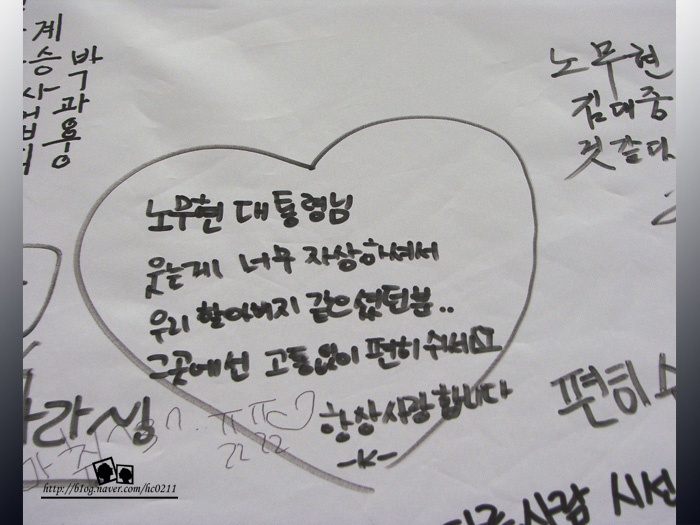 계승
박과용
노무현
김대중
것 같다
노무현 대통령님
웃는게 너무 자상하셔서
우리 할아버지 같으셨던분..
그곳에선 고통없이 편히 쉬세요
항상 사랑합니다
-K-
편히
사람 시선
http://blog.naver.com/hc0211